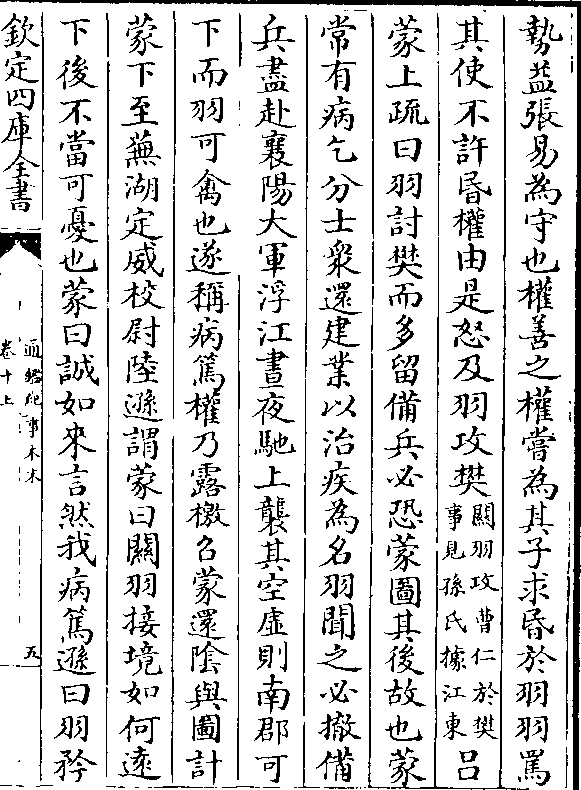 勢益張易為守也權善之權嘗為其子求昏於羽羽罵
其使不許昏權由是怒及羽攻樊關羽攻曹仁於樊事見孫氏據江東呂
蒙上疏曰羽討樊而多留備兵必恐蒙圖其後故也蒙
常有病乞分士衆還建業以治疾為名羽聞之必撤備
兵盡赴襄陽大軍浮江晝夜馳上襲其空虛則南郡可
下而羽可禽也遂稱病篤權乃露檄召蒙還陰與圖計
蒙下至蕪湖定威校尉陸遜謂蒙曰關羽接境如何遠
下後不當可憂也蒙曰誠如來言然我病篤遜曰羽矜
欽定四庫全書
通鑑紀事本末
卷十上
五